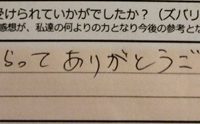 受けられていかがでしたか？（ズバリ
感想が、私達の何よりの力となり今後の参考とな
らって ありがとうご